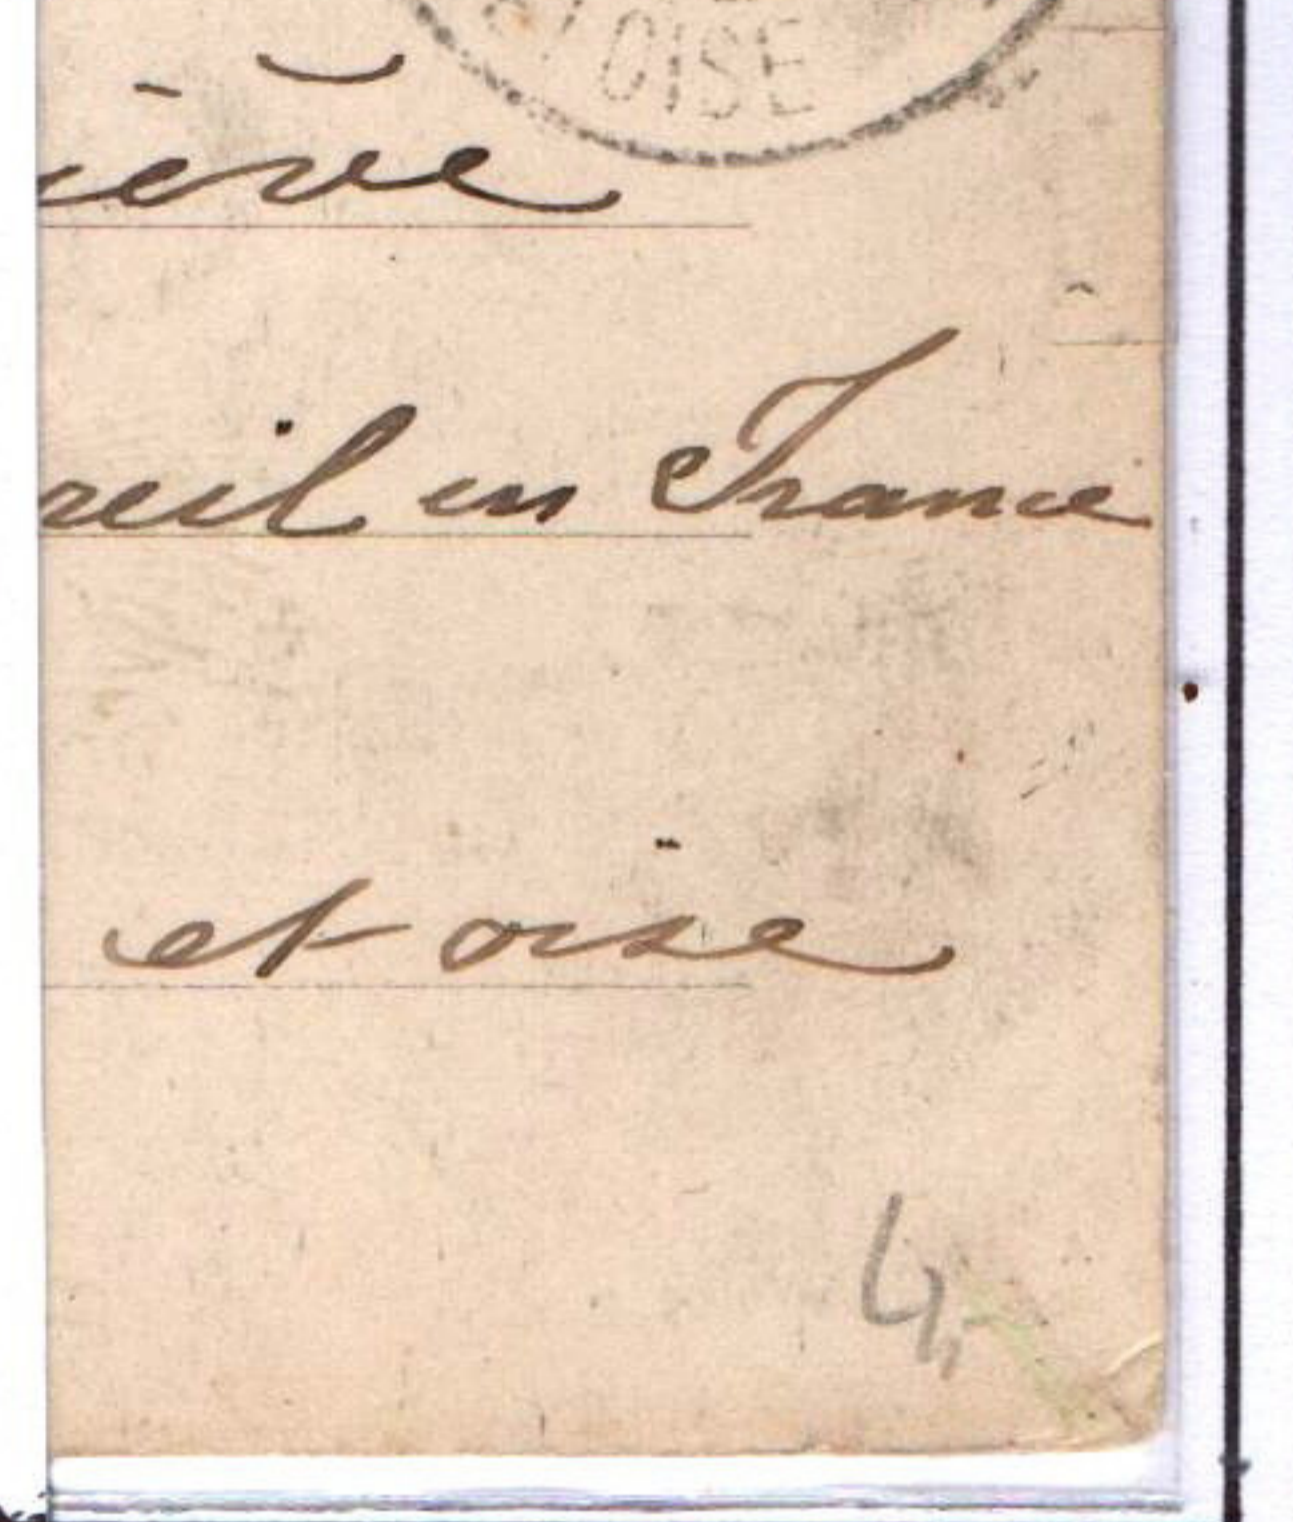 OISE
iève
reil en France
et oise
4,